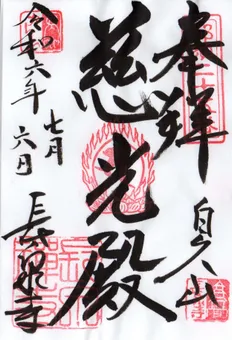 奉拝
白久山
慈光殿
令和六年
七月
六日
長泉寺